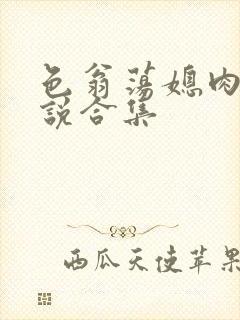 色翁荡媳肉
说合集
西瓜天使苹果